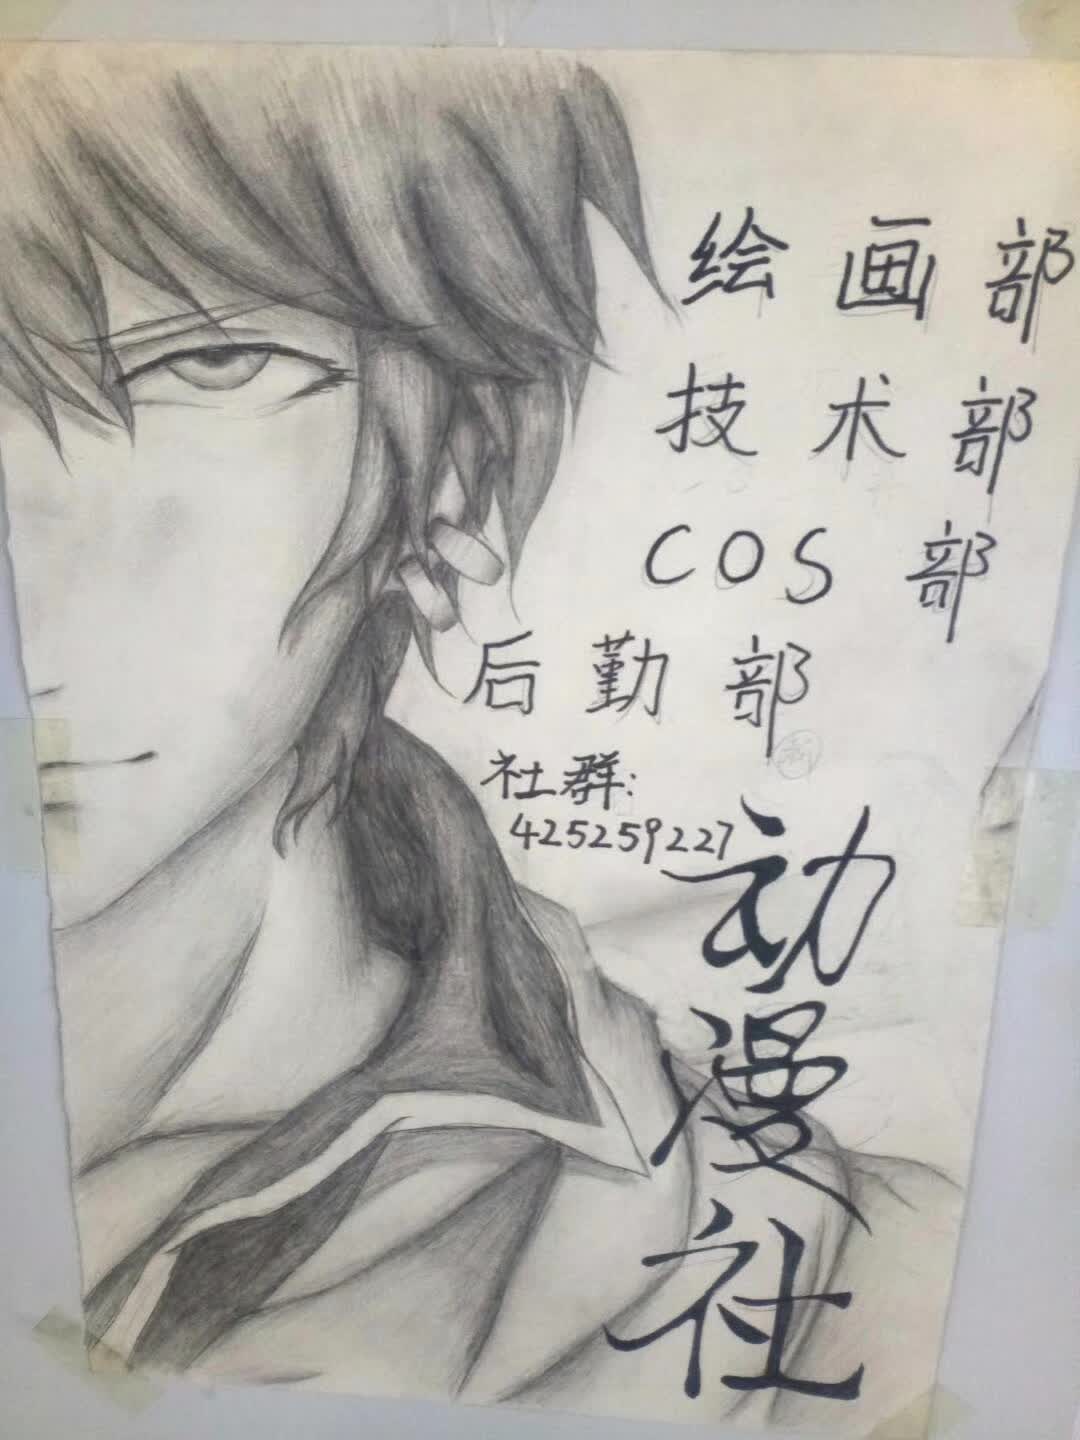 绘画部
技术部
COS部
后勤部
社群:
425259227
动漫社